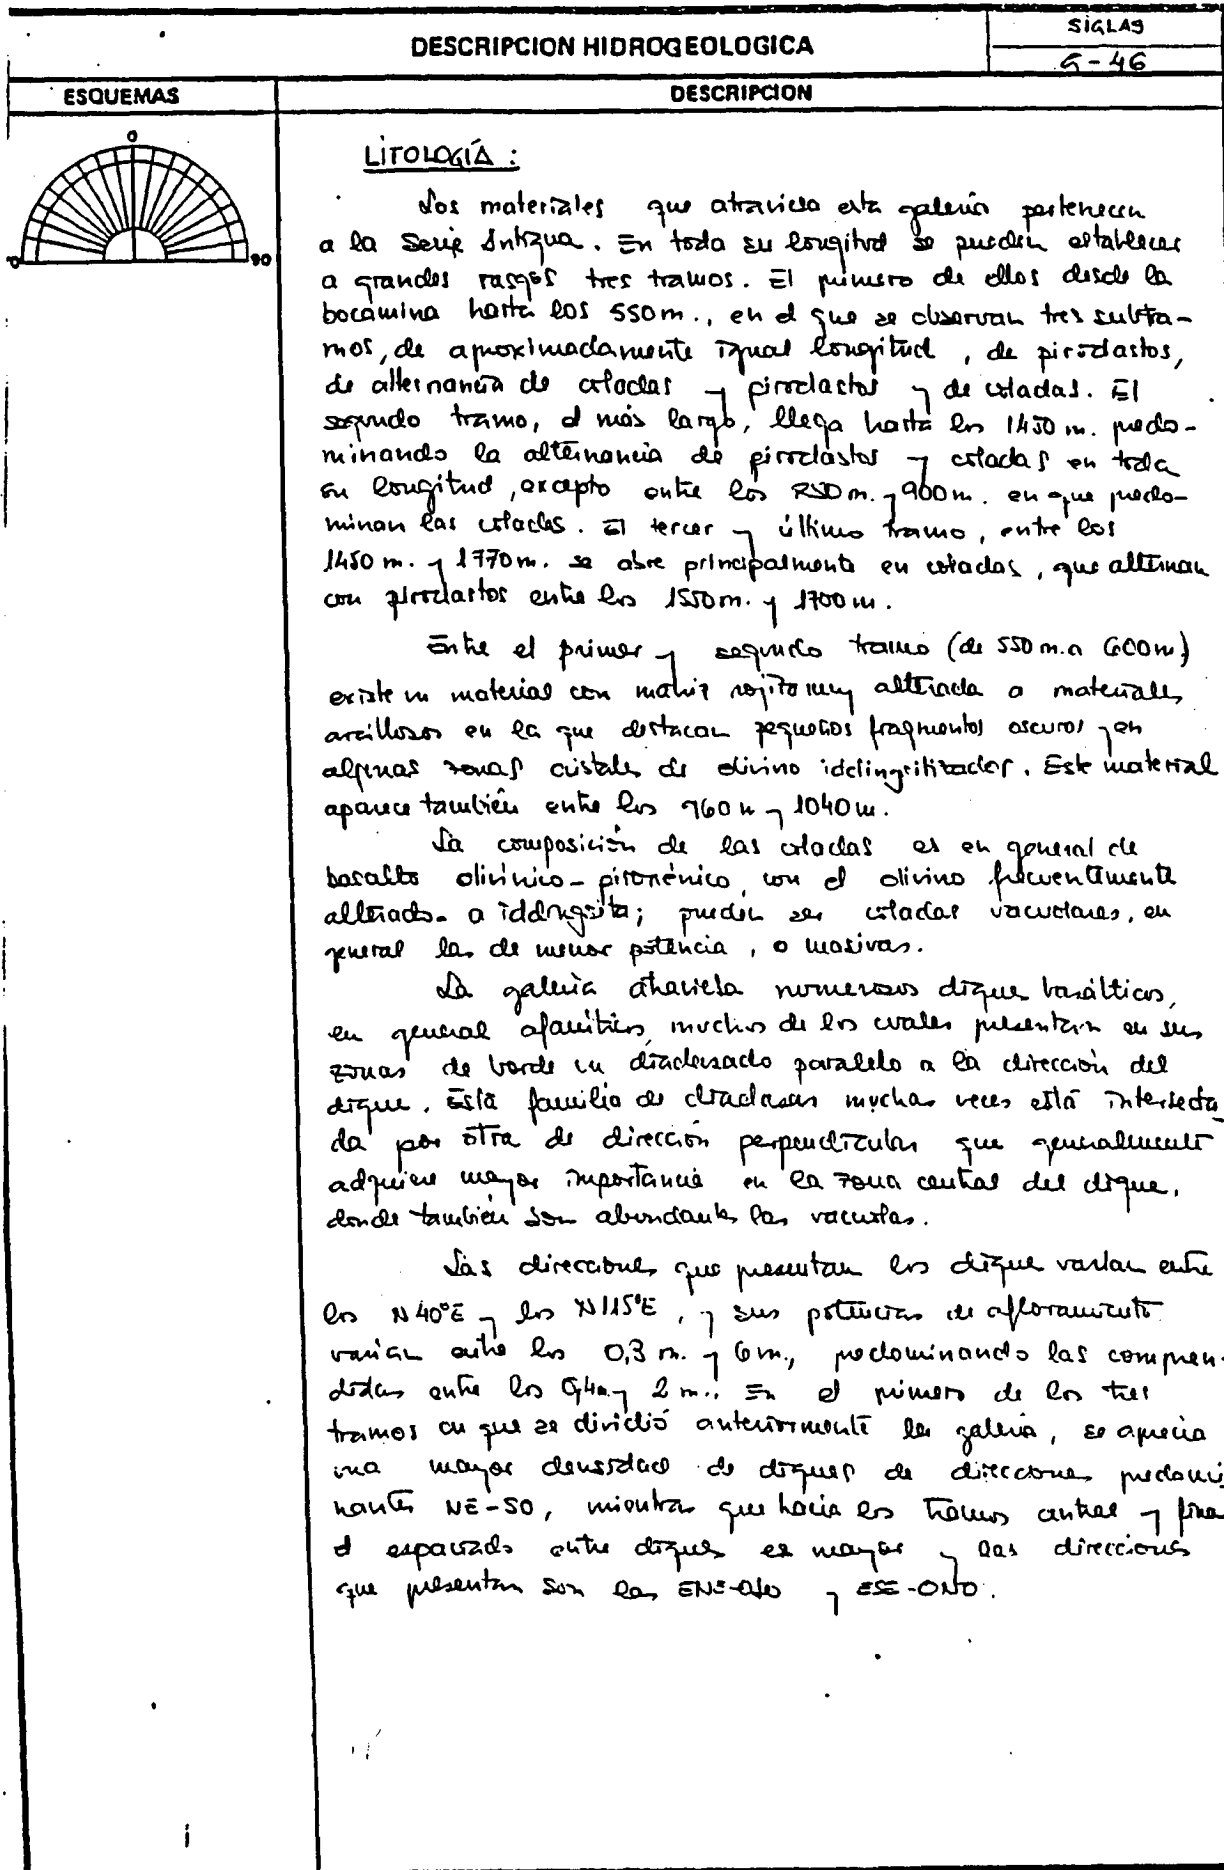 DESCRIPCION HIDROGEOLOGICA
SIGLAS
G-46
ESQUEMAS
DESCRIPCION
0
90
90
LITOLOGÍA :
Los materiales que atraviesa esta galería pertenecen
a la Serie Antigua. En toda su longitud se pueden establecer
a grandes rasgos tres tramos. El primero de ellos desde la
bocamina hasta los 550m., en el que se observan tres subtra-
mos, de aproximadamente igual longitud, de piroclastos,
de alternancia de coladas y piroclastos y de coladas. El
segundo tramo, el más largo, llega hasta los 1450 m. predo-
minando la alternancia de piroclastos y coladas en toda
su longitud, excepto entre los 850m. y 900m. en que predo-
minan las coladas. El tercer y último tramo, entre los
1450 m. y 1770m. se abre principalmente en coladas, que alternan
con piroclastos entre los 1550m. y 1700 m.
Entre el primer y segundo tramo (de 550 m. a 600m)
existe un material con matriz rojiza muy alterada a materiales
arcillosos en la que destacan pequeños fragmentos oscuros y en
algunas zonas cristales de olivino iddingsitizados. Este material
aparece también entre los 960 m y 1040 m.
La composición de las coladas es en general de
basalto olivínico-piroxénico, con el olivino frecuentemente
alterado a iddingsita; pueden ser coladas vacuolares, en
general las de menor potencia, o masivas.
La galería atraviesa numerosos diques basálticos,
en general afaníticos, muchos de los cuales presentan en sus
zonas de borde un diaclasado paralelo a la dirección del
dique. Esta familia de diaclasas muchas veces está intersecta-
da por otra de dirección perpendicular que generalmente
adquiere mayor importancia en la zona central del dique,
donde también son abundantes las vacuolas.
Las direcciones que presentan los diques varían entre
los N40°E y los N115°E, y sus potencias de afloramiento
varían entre los 0,3 m. y 6m., predominando las compren-
didas entre los 0,4m y 2 m.. En el primero de los tres
tramos en que se dividió anteriormente la galería, se aprecia
una mayor densidad de diques de direcciones predomi-
nantes NE-SO, mientras que hacia los tramos central y final
el espaciado entre diques es mayor y las direcciones
que presentan son las ENE-OSO y ESE-ONO.